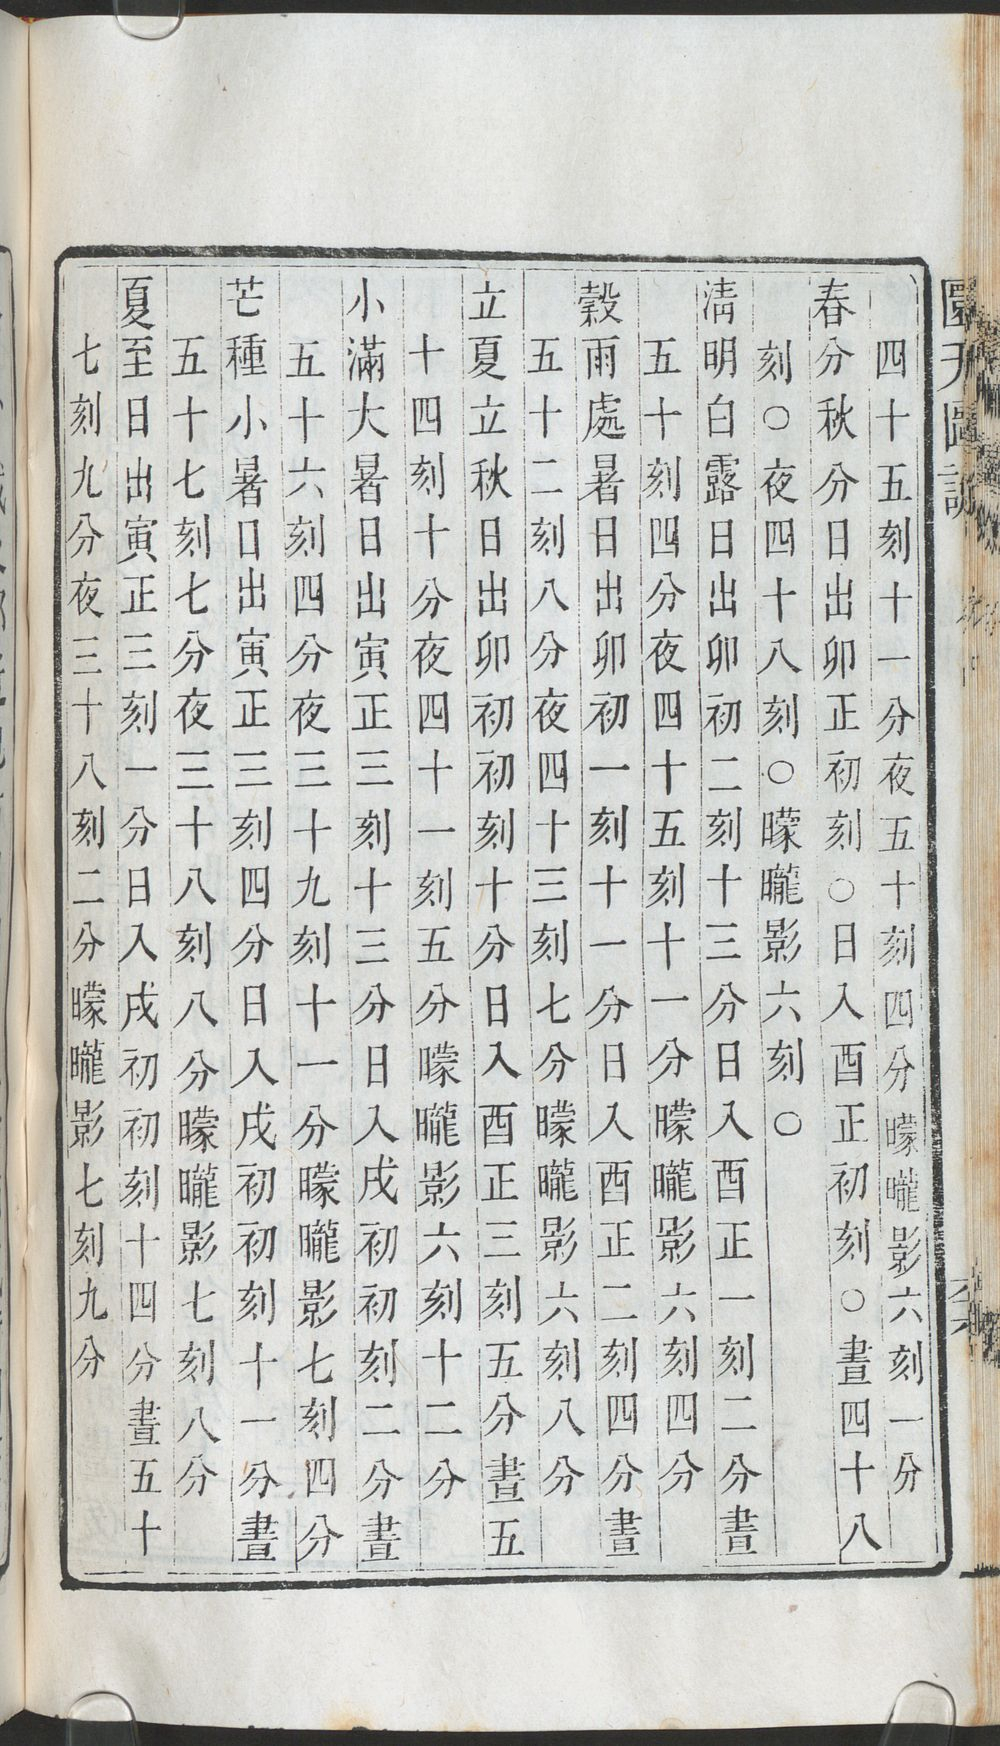 四十五刻十一分夜五十刻四分曚曨影六刻一分
春分秋分日出卯正初刻○日入酉正初刻○晝四十八
刻○夜四十八刻○曚曨影六刻○
淸明白露日出卯初二刻十三分日入酉正一刻二分晝
五十刻四分夜四十五刻十一分曚曨影六刻四分
穀雨處暑日出卯初一刻十一分日入酉正二刻四分晝
五十二刻八分夜四十三刻七分曚曨影六刻八分
立夏立秋日出卯初初刻十分日入酉正三刻五分晝五
十四刻十分夜四十一刻五分曚曨影六刻十二分
小滿大暑日出寅正三刻十三分日入戌初初刻二分晝
五十六刻四分夜三十九刻十一分曚曨影七刻四分
芒種小暑日出寅正三刻四分日入戌初初刻十一分晝
五十七刻七分夜三十八刻八分曚曨影七刻八分
夏至日出寅正三刻一分日入戌初初刻十四分晝五十
七刻九分夜三十八刻二分曚曨影七刻九分